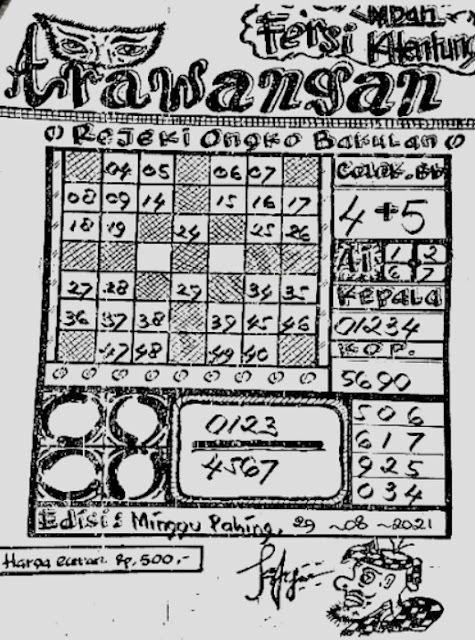 Fersi
Arawangan
Rejeki Ongko Bakulan
04 05 06 07
08 09 14 15 16 17
18 19 24 25 26
27 28 29 34 35
36 37 38 39 45 46
47 48 49 40
4+5
Ai 1 2
6 7
Kepala
01234
KOP.
5690
506
617
925
034
0123
4567
Edisi: Minggu Pahing, 29 -08 -2021
Rp, 500,-